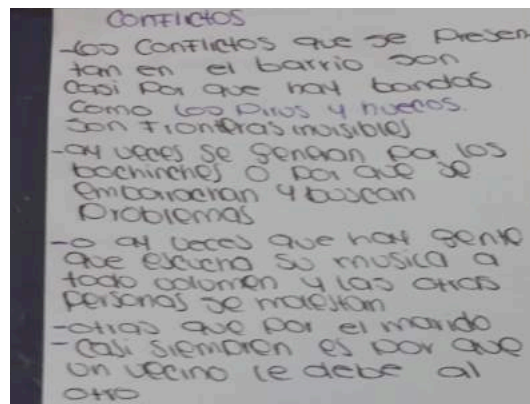 CONFLICTOS
-Los conflictos que se presen
tan en el barrio son
casi por que hay bandas
como los pinos y huecos.
son fronteras invisibles
-ay veces se generan por los
bochinches o por que se
emborrachan y buscan
problemas
-o ay veces que hay gente
que escucha su musica a
todo volumen y las otras
personas se molestan
-otras que por el marido
-casi siempren es por que
un vecino le debe al
otro